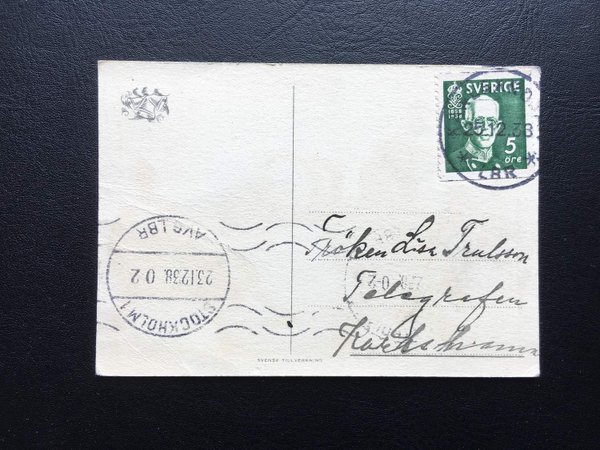 SVERIGE
1858
1938
5
öre
25.12.38
LBR
Fröken Lisa Trulsson
Telegrafen
Karlshamn
STOCKHOLM 1
23.12.38 0 2
AVG.LBR
SVENSK TILLVERKNING